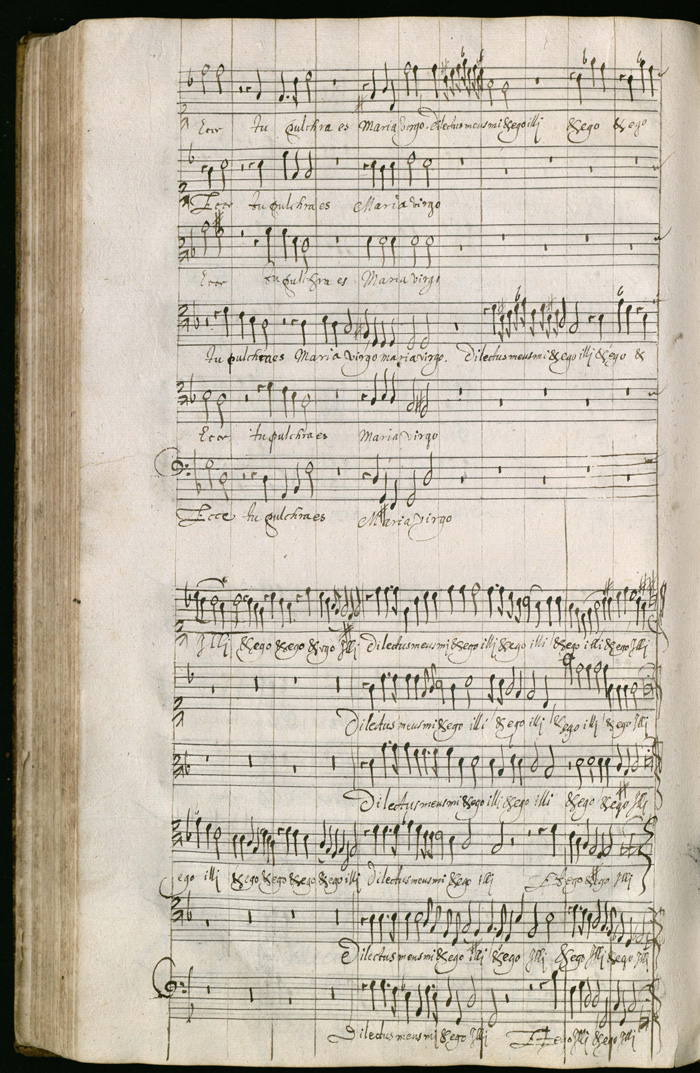 Ecce tu pulchra es Maria Virgo. Dilectus meus mi & ego illj & ego & ego
Ecce tu pulchra es Maria virgo
Ecce tu pulchra es Maria virgo
tu pulchra es Maria Virgo maria virgo. Dilectus meus mi & ego illj & ego &
Ecce tu pulchra es Maria Virgo
Ecce tu pulchra es Maria Virgo
Illj & ego & ego & ego Illj Dilectus meus mi & ego illj & ego illj & ego illi & ego Illj
Dilectus meus mi & ego illi & ego illj & ego illj & ego Illj
Dilectus meus mi & ego illj & ego illi & ego & ego Illj
ego illj & ego & ego & ego & ego illj Dilectus meus mi & ego Illj Et ego & ego Illj
Dilectus meus mi & ego illj & ego Illj & ego Illj & ego Illj
Dilectus meus mi & ego Illj Et ego Illj & ego Illj